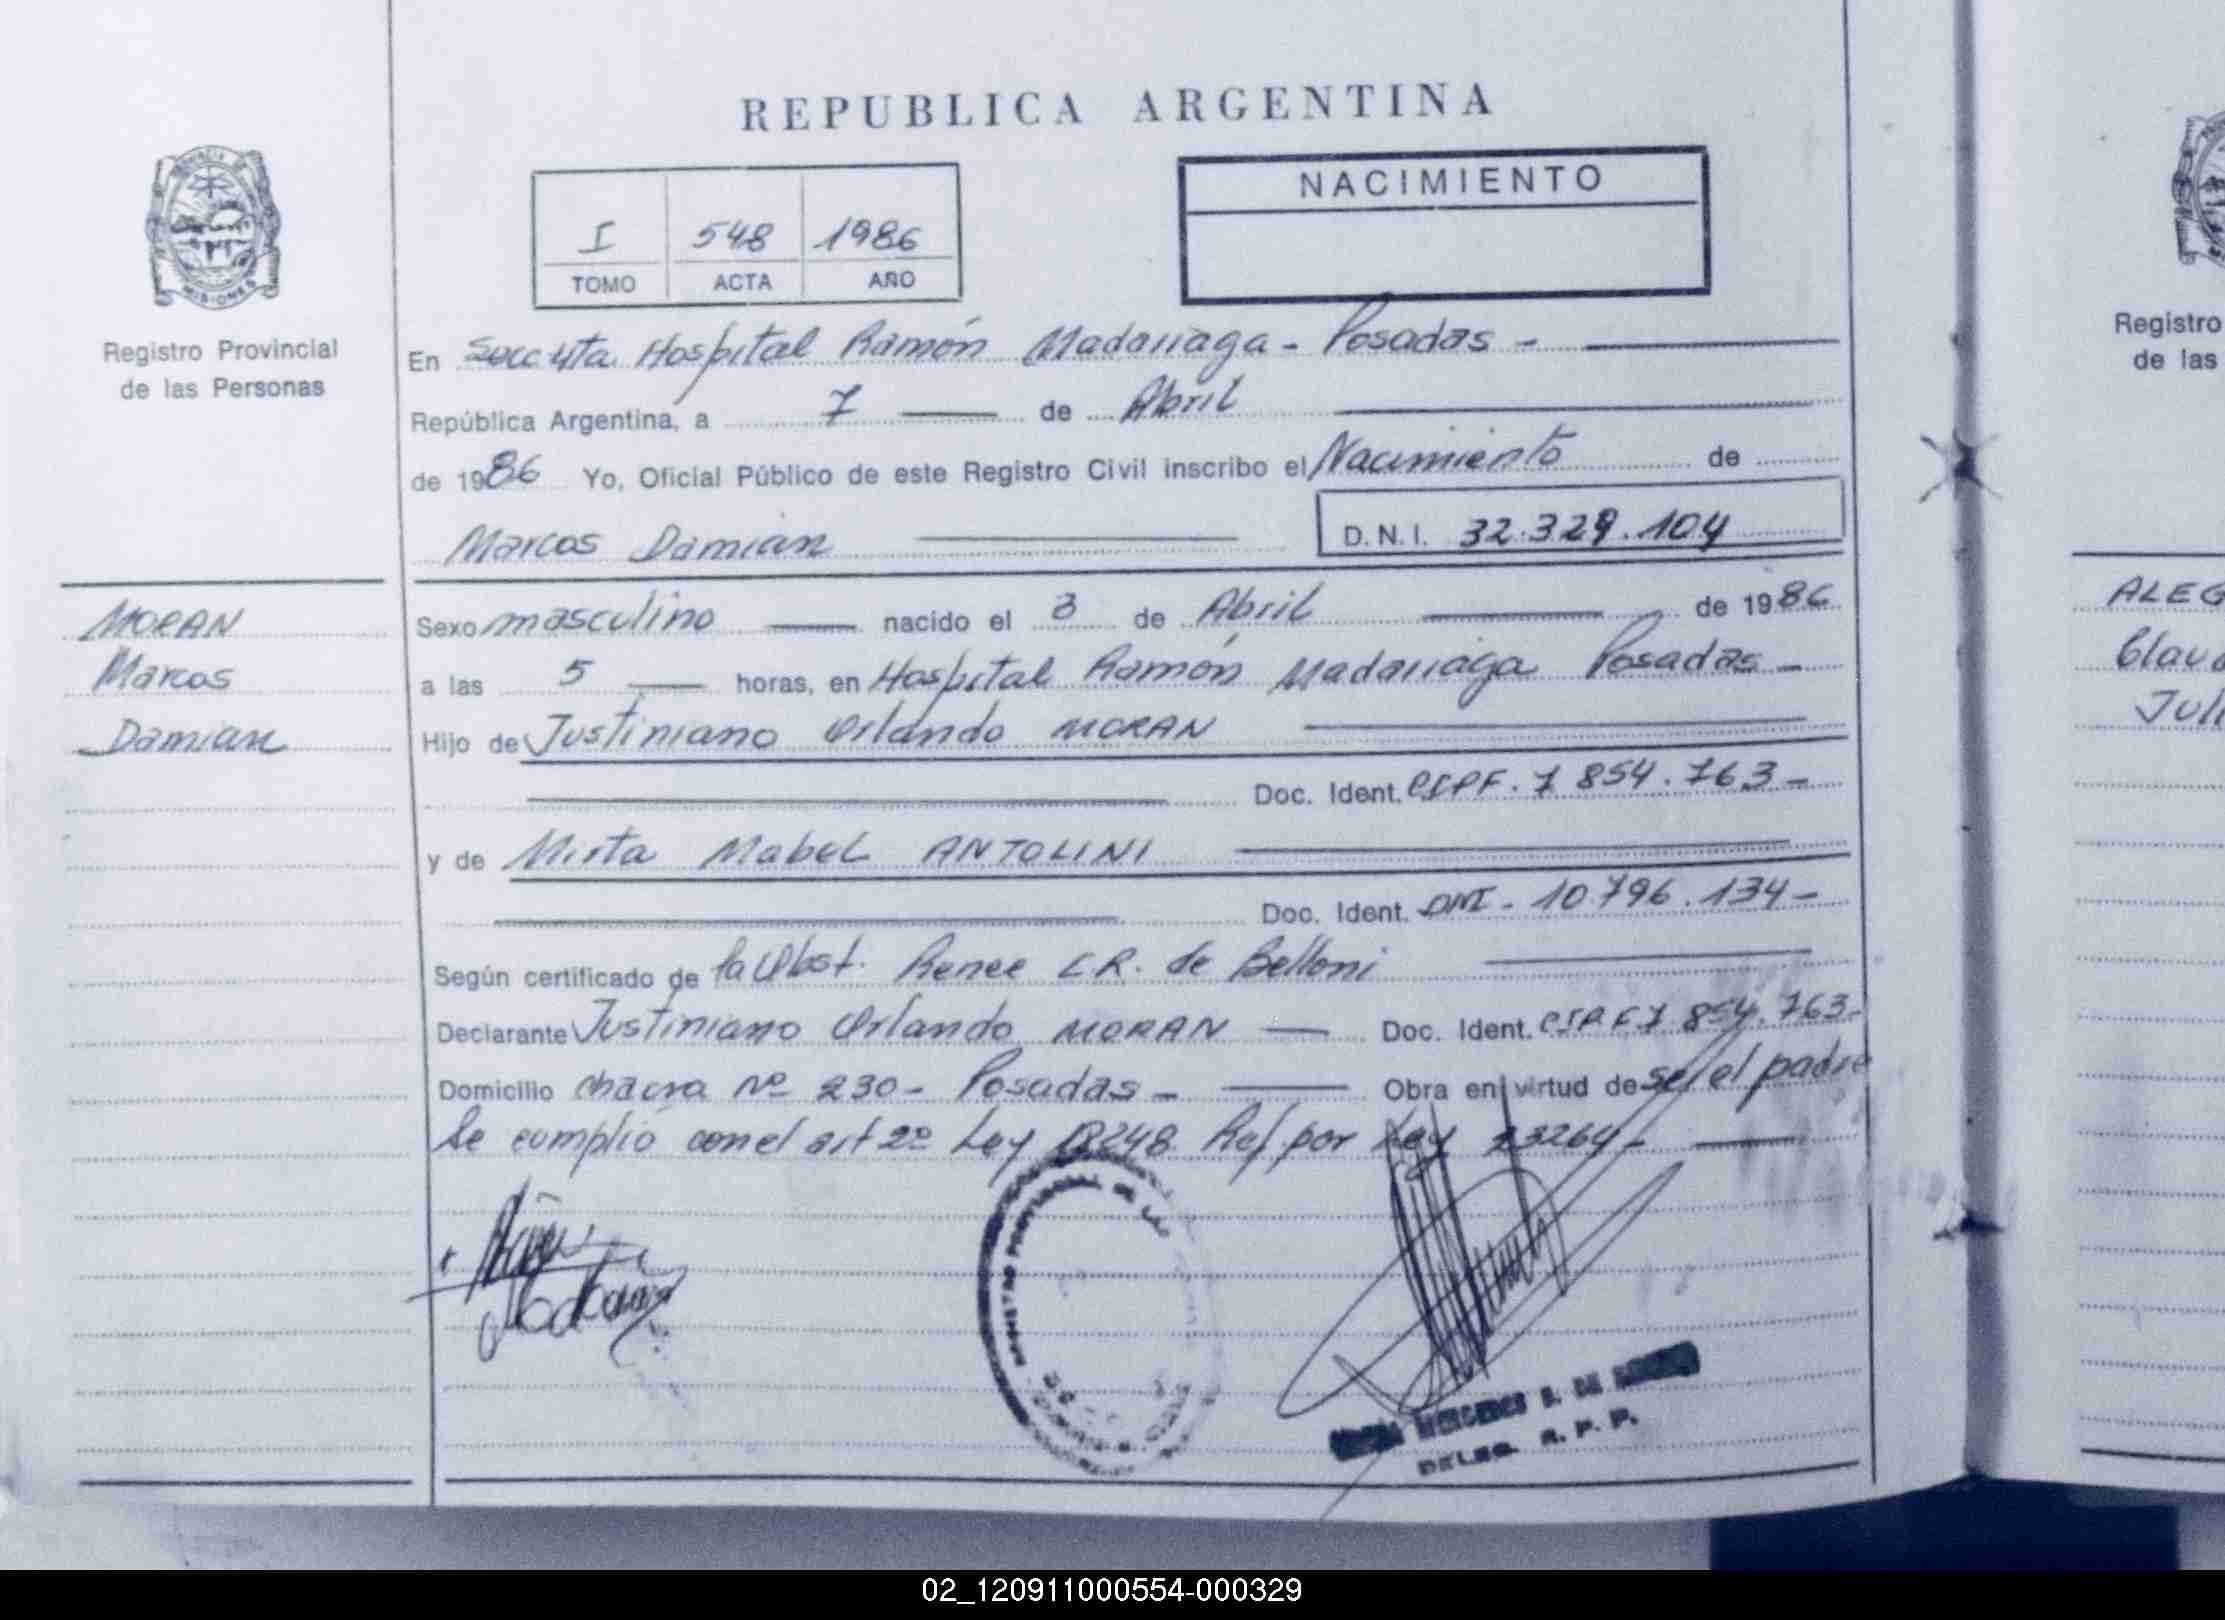 REPUBLICA ARGENTINA
NACIMIENTO
I 548 1986
TOMO ACTA AÑO
MISIONES
Registro Provincial
de las Personas
En Secc 4ta Hospital Ramón Madariaga - Posadas -
República Argentina, a 7 de Abril
de 1986 Yo, Oficial Público de este Registro Civil inscribo el Nacimiento de
Marcos Damian D.N.I. 32.329.104
MORAN
Marcos
Damian
Sexo masculino nacido el 3 de Abril de 1986
a las 5 horas, en Hospital Ramón Madariaga Posadas -
Hijo de Justiniano Orlando MORAN
Doc. Ident. CIPF. 7 854.763 -
y de Mirta Mabel ANTOLINI
Doc. Ident. DNI - 10.796.134 -
Según certificado de la Obst. Renee C.R. de Belloni
Declarante Justiniano Orlando MORAN Doc. Ident. CIPF 7 854.763 -
Domicilio chacra Nº 230 - Posadas - Obra en virtud de ser el padre
Se cumplió con el art 2º Ley 18248 Ref. por Ley 23264 -
DELEG. R. P. P.
Registro
de las
ALEG
Clau
Juli
02_120911000554-000329